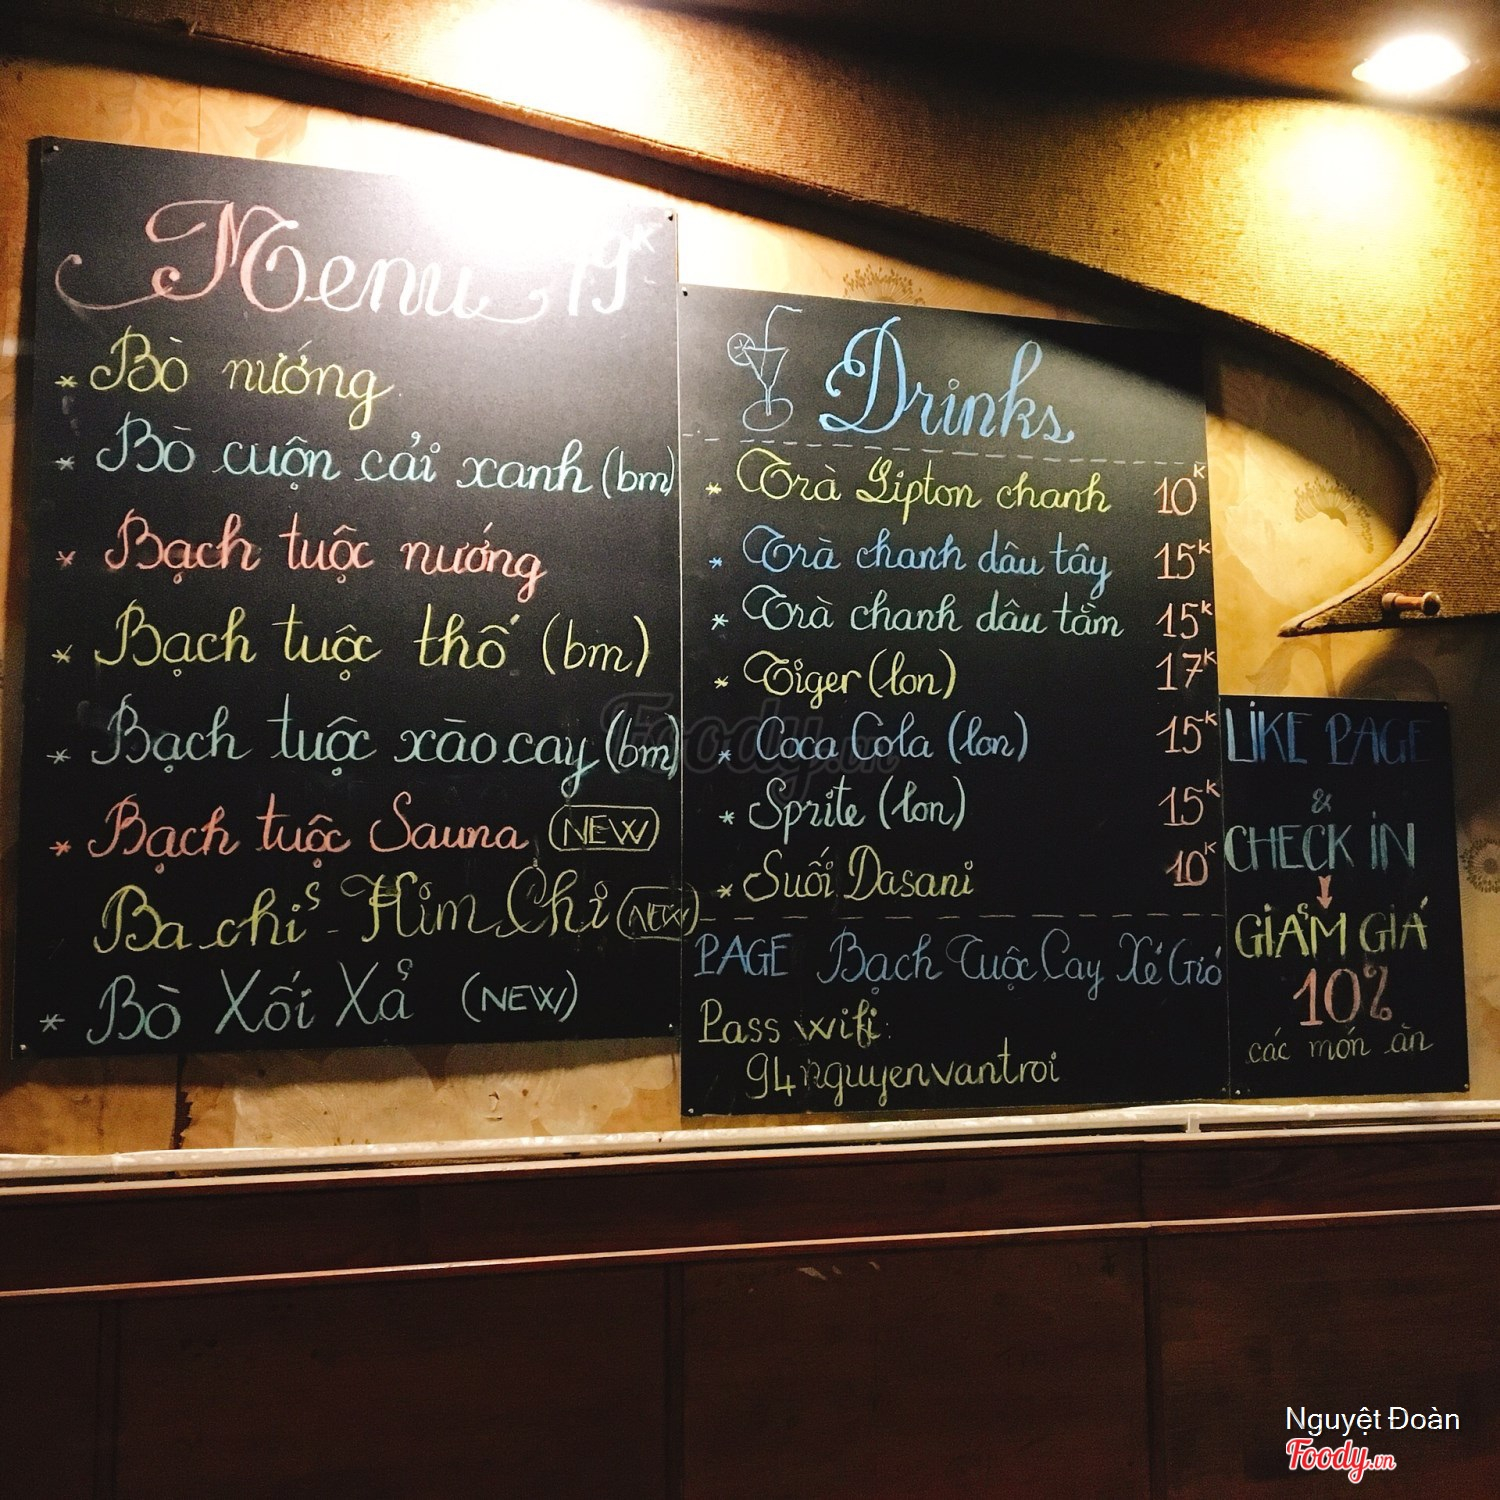 Menu 79K
* Bò nướng
* Bò cuộn cải xanh (bm)
* Bạch tuộc nướng
* Bạch tuộc thố (bm)
* Bạch tuộc xào cay (bm)
* Bạch tuộc Sauna (NEW)
Ba chỉ - Kim Chi (NEW)
* Bò Xối Xả (NEW)
Drinks
* Trà Lipton chanh 10K
* Trà chanh dâu tây 15K
* Trà chanh dâu tằm 15K
* Tiger (lon) 17K
* Coca Cola (lon) 15K
* Sprite (lon) 15K
* Suối Dasani 10K
PAGE Bạch Tuộc Cay Xé Gió
Pass wifi:
94nguyenvantroi
LIKE PAGE
&
CHECK IN
GIẢM GIÁ
10%
các món ăn
Foody.vn
Nguyệt Đoàn
Foody.vn